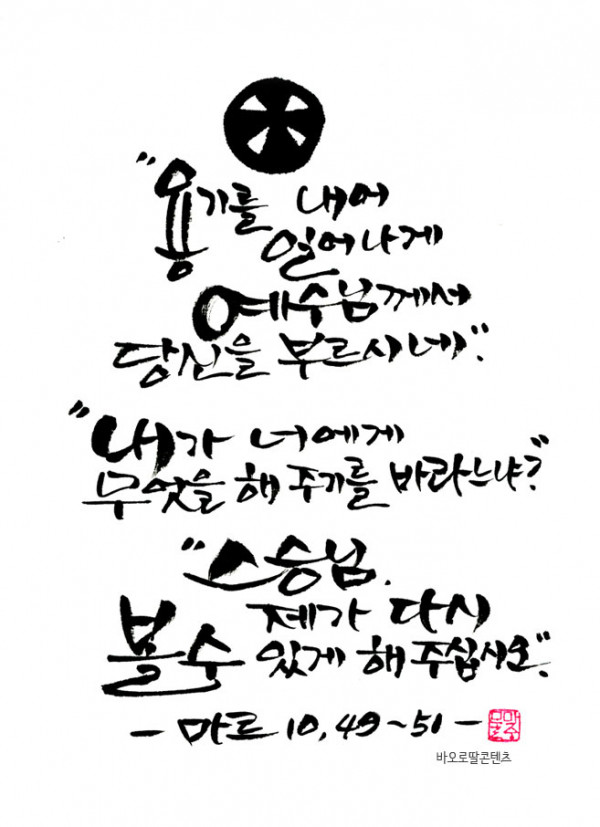 "용기를 내어
일어나게
예수님께서
당신을 부르시네."
"내가 너에게
무엇을 해 주기를 바라느냐?"
"스승님.
제가 다시
볼 수 있게 해 주십시오."
- 마르 10, 49~51 -
바오로딸콘텐츠